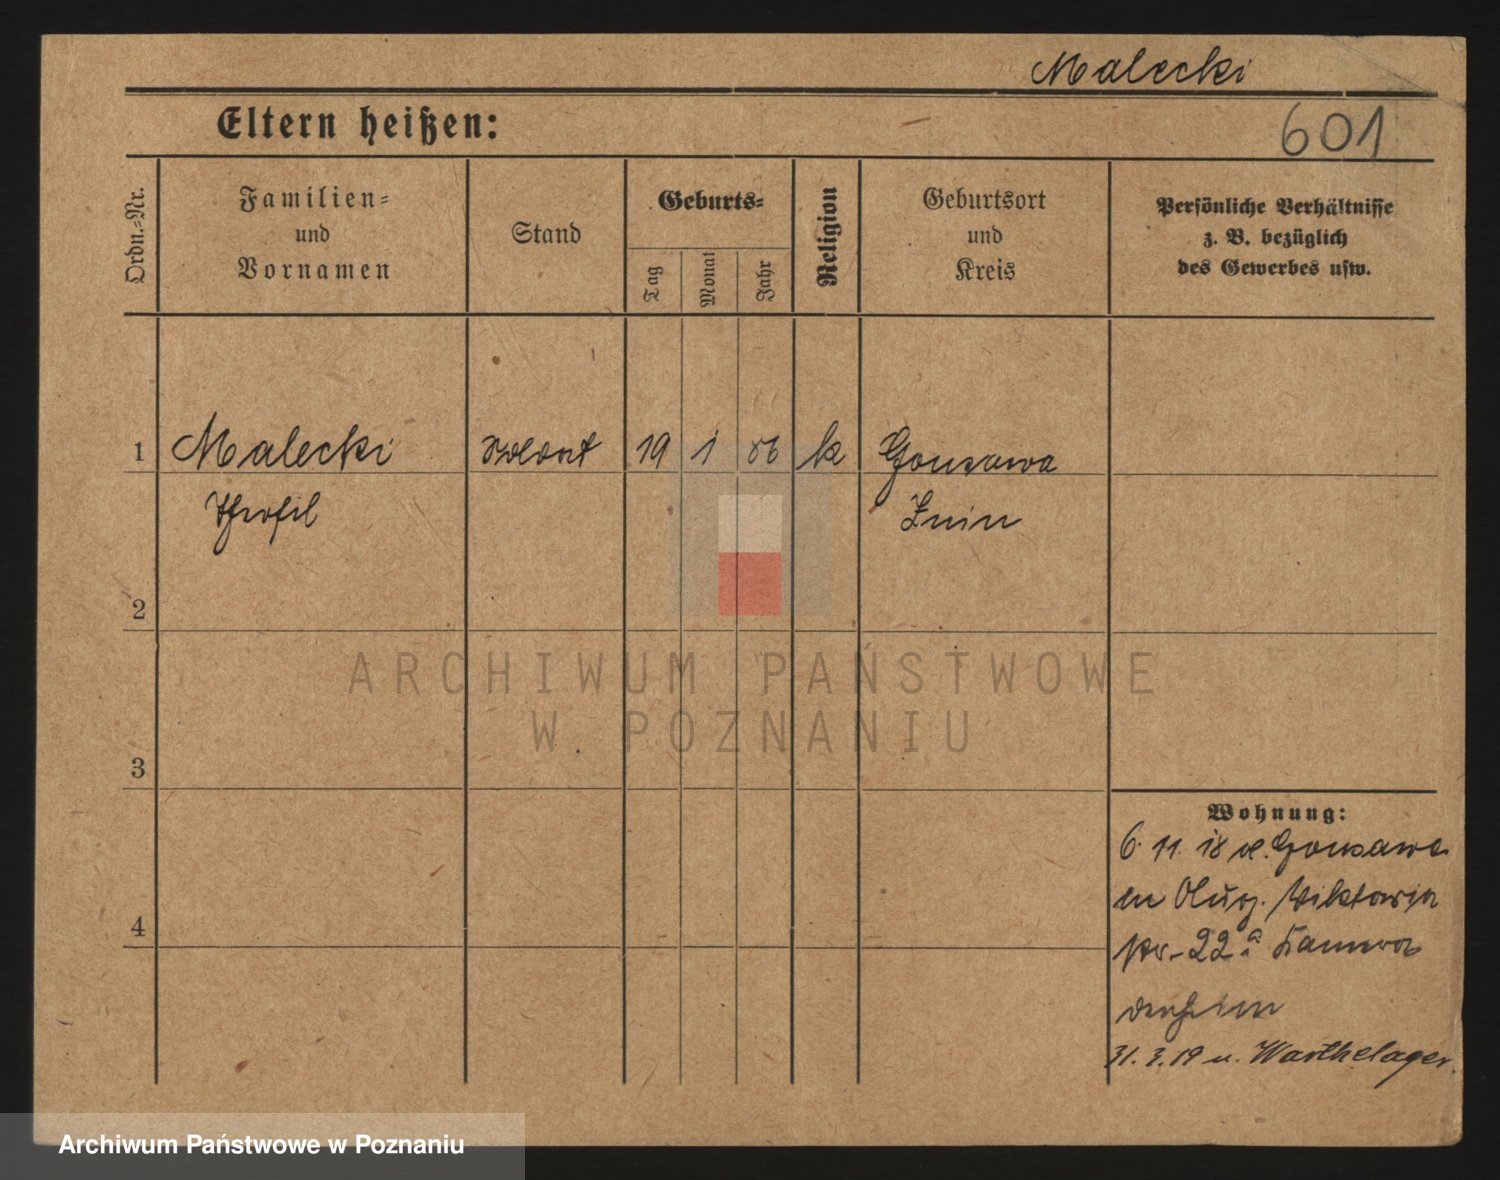 Malecki
Eltern heißen:
601
Ordn.-Nr.
Familien-
und
Vornamen
Stand
Geburts-
Tag
Monat
Jahr
Religion
Geburtsort
und
Kreis
Persönliche Verhältnisse
z. B. bezüglich
des Gewerbes usw.
1 Malecki Soldat 19 1 k Gonsawa
Theofil Znin
2
ARCHIWUM PAŃSTWOWE
W POZNANIU
3
Wohnung:
6. 11. 18 v. Gonsawa
Viktoria
4
22a
31. 3. 19 n. Warthelager.
Archiwum Państwowe w Poznaniu